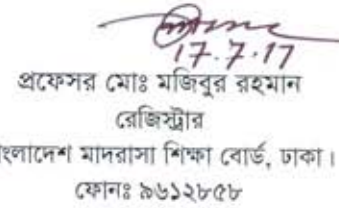 17.7.17
প্রফেসর মোঃ মজিবুর রহমান
রেজিস্ট্রার
বাংলাদেশ মাদরাসা শিক্ষা বোর্ড, ঢাকা।
ফোনঃ ৯৬১২৮৫৮